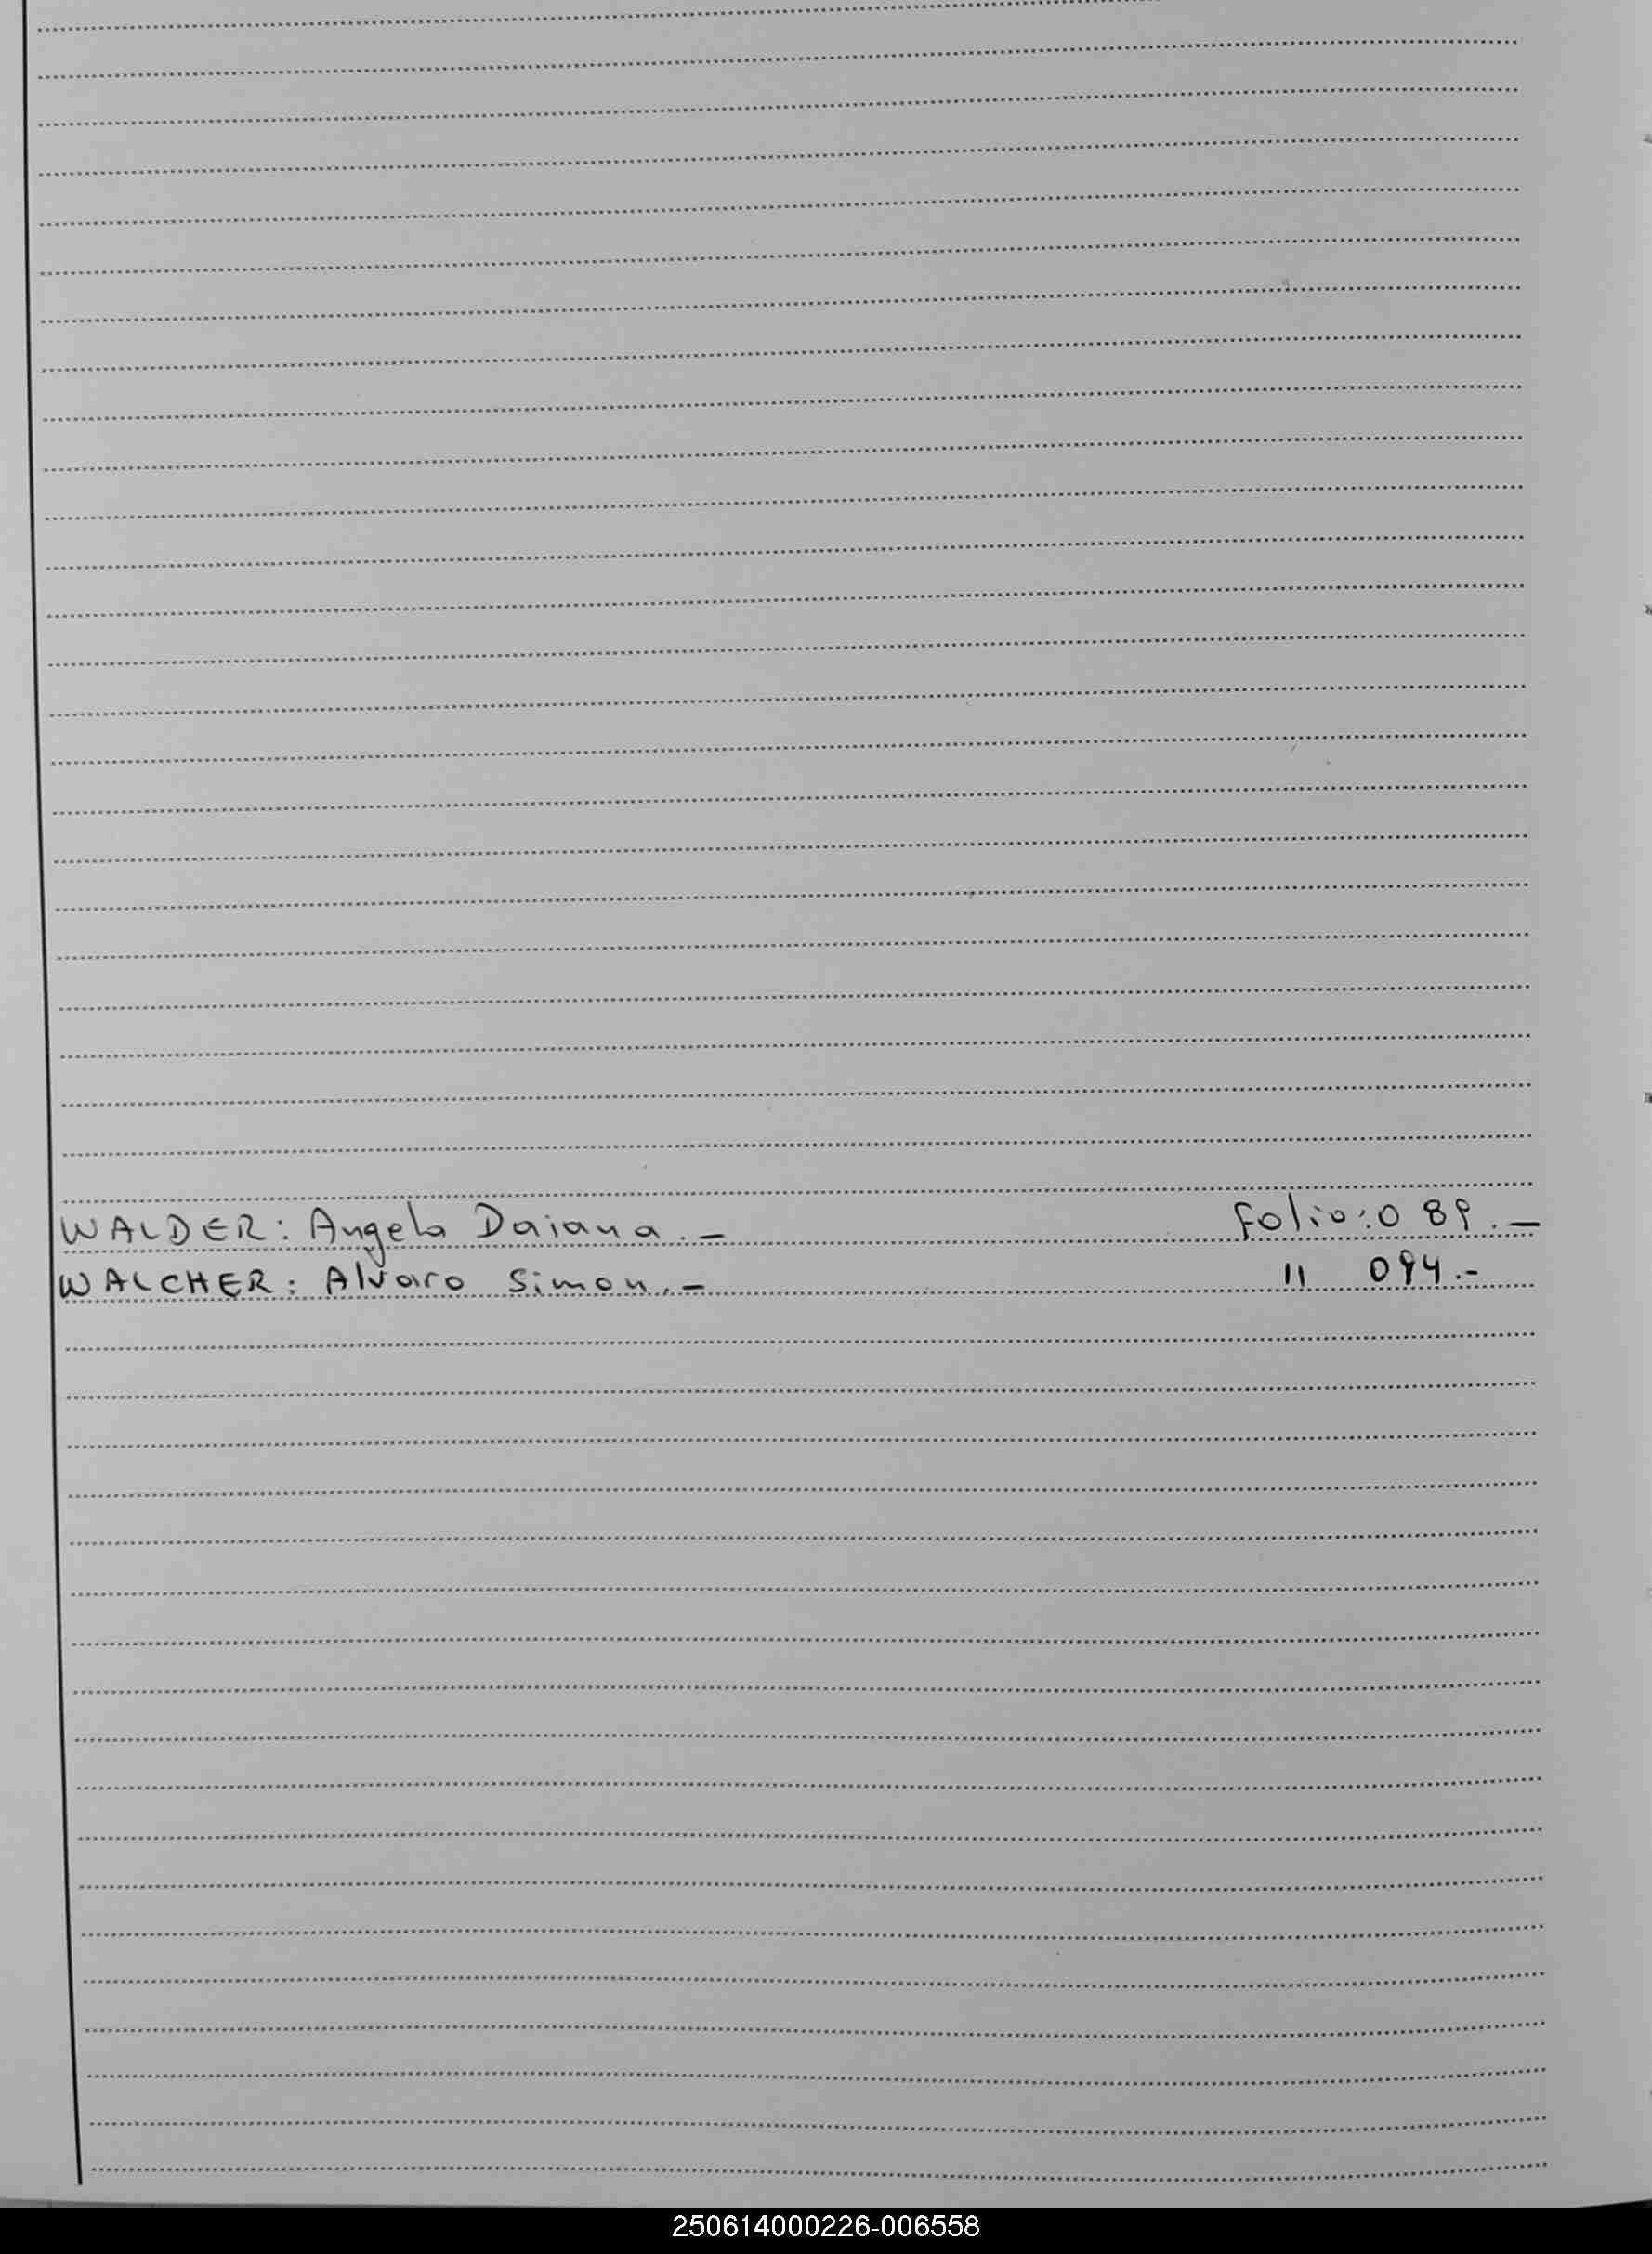 WALDER: Angela Daiana.- folio: 089.-
WALCHER: Alvaro Simon.- 11 094.-
250614000226-006558